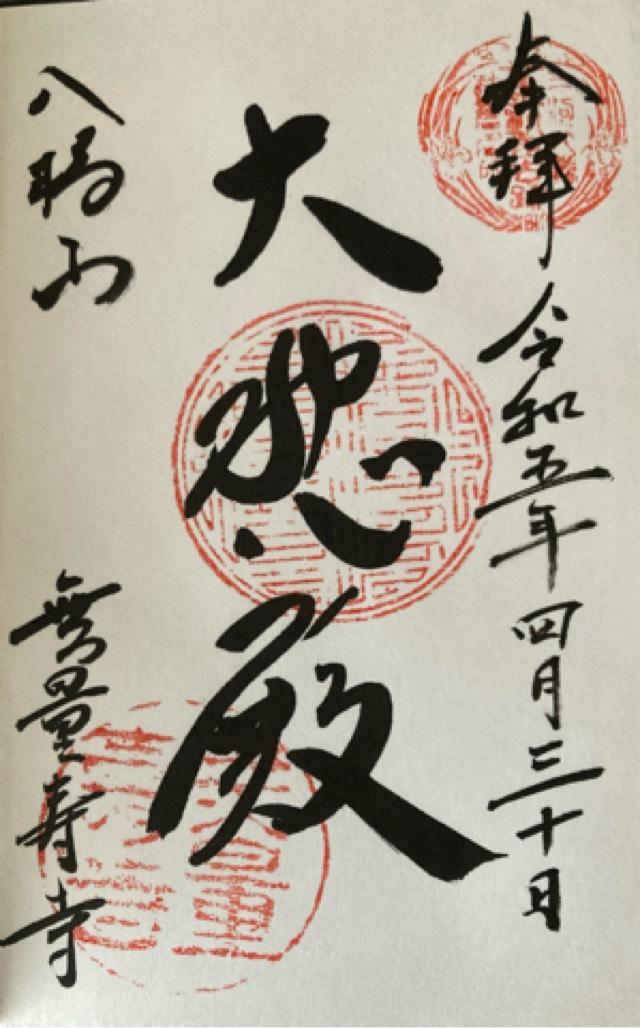 奉拝
令和五年四月三十日
大悲殿
八橋山
無量寿寺